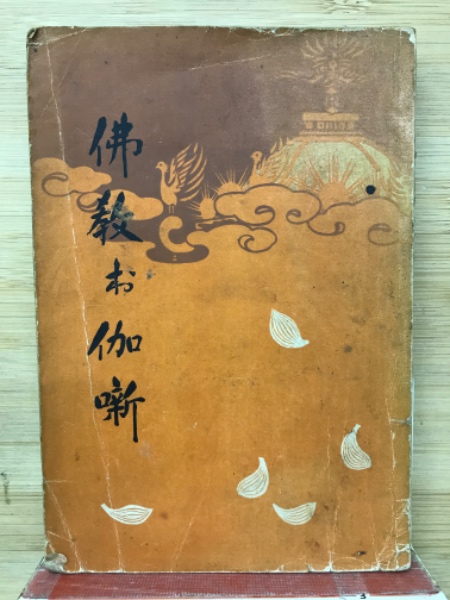 佛教お伽噺